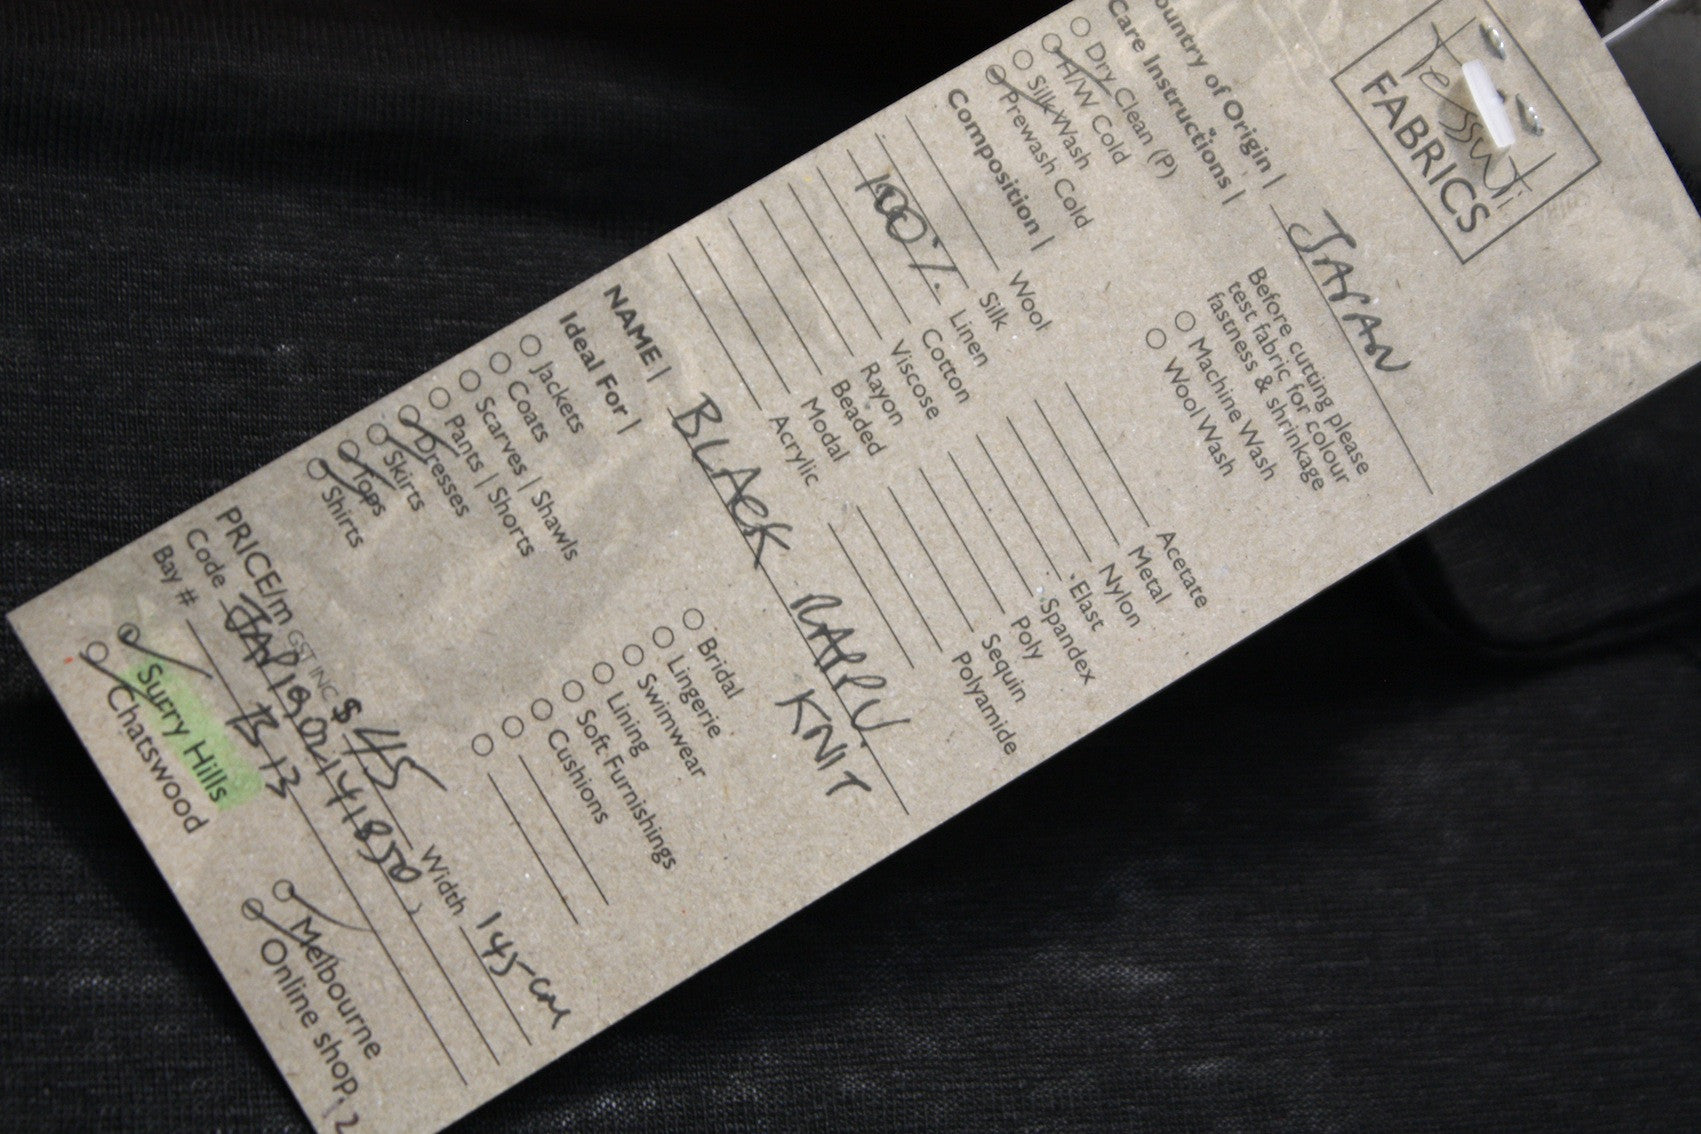 Tessuti
FABRICS
Country of Origin | JAPAN
Care Instructions |
Before cutting please
test fabric for colour
fastness & shrinkage
Dry Clean (P)
H/W Cold
Silk Wash
Prewash Cold
Machine Wash
Wool Wash
Composition |
Wool
Silk
100% Linen
Cotton
Viscose
Rayon
Beaded
Modal
Acrylic
Acetate
Metal
Nylon
Elast
Spandex
Poly
Sequin
Polyamide
NAME | BLACK RAPPU
KNIT
Ideal For |
Jackets
Coats
Scarves | Shawls
Pants | Shorts
Dresses
Skirts
Tops
Shirts
Bridal
Lingerie
Swimwear
Lining
Soft Furnishings
Cushions
PRICE/m GST INC $45 Width 145cm
Code
Bay # B13
Surry Hills
Chatswood
Melbourne
Online shop